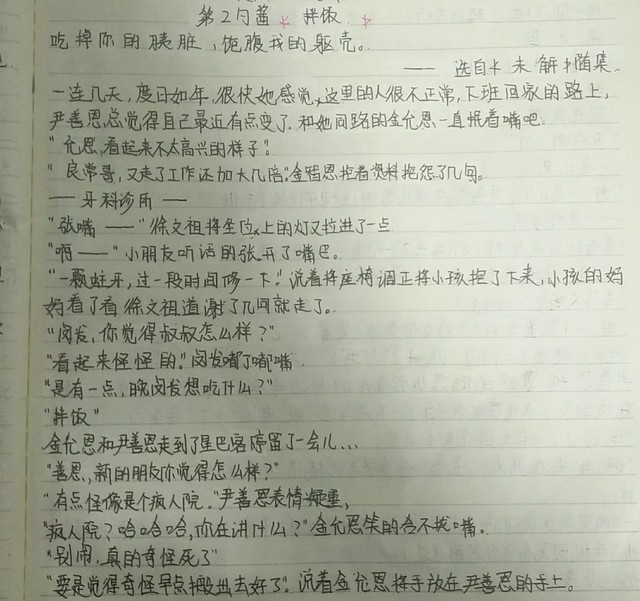 第2勺酱 * 拌饭. *
吃掉你的胰脏,饱腹我的躯壳。
—— 选自《未解》随集.
一连几天,度日如年,很快她感觉,这里的人很不正常,下班回家的路上,
尹善恩总觉得自己最近有点变了.和她同路的金允恩一直抿着嘴吧.
"允恩,看起来不太高兴的样子!
"良常哥,又走了工作还加大几倍."金智恩抱着资料抱怨了几句。
— 牙科诊所 —
"张嘴 ——"徐文祖将坐位上的灯又拉进了一点
"啊 ——"小朋友听话的张开了嘴巴。
"一颗蛀牙,过一段时间修一下."说着将座椅调正将小孩抱了下来,小孩的妈
妈看了看徐文祖道谢了几句就走了。
"闵发,你觉得叔叔怎么样?"
"看起来怪怪的."闵发嘟了嘟嘴.
"是有一点,晚闵发想吃什么?"
"拌饭"
金允恩和尹善恩走到了星巴客停留了一会儿...
"善恩,新的朋友你觉得怎么样?"
"有点怪像是个疯人院."尹善恩表情凝重,
"疯人院?哈哈哈,你在讲什么?"金允恩笑的合不拢嘴。
"别闹.真的奇怪死了"
"要是觉得奇怪早点搬出去好了".说着金允恩将手放在尹善恩的手上。